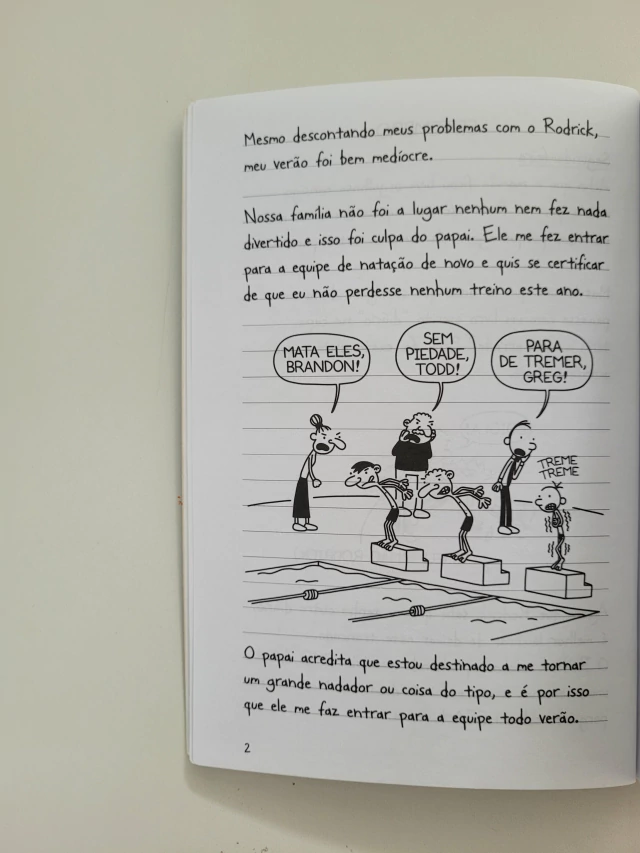 Mesmo descontando meus problemas com o Rodrick,
meu verão foi bem medíocre.
Nossa família não foi a lugar nenhum nem fez nada
divertido e isso foi culpa do papai. Ele me fez entrar
para a equipe de natação de novo e quis se certificar
de que eu não perdesse nenhum treino este ano.
MATA ELES,
BRANDON!
SEM
PIEDADE,
TODD!
PARA
DE TREMER,
GREG!
TREME
TREME
O papai acredita que estou destinado a me tornar
um grande nadador ou coisa do tipo, e é por isso
que ele me faz entrar para a equipe todo verão.
2